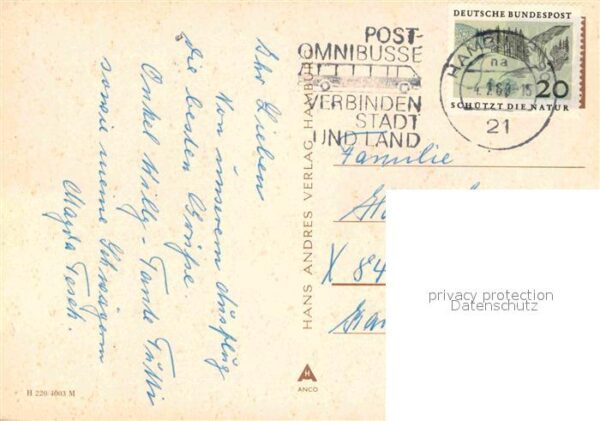 Ihr Lieben
Von unserem Ausflug
die besten Grüße.
Onkel Willy - Tante Tutti
sowie meine Schwägerin
Magda Tesch.
H 220/4003 M
HANS ANDRES VERLAG, HAMBURG
H
ANCO
POST-
OMNIBUSSE
VERBINDEN
STADT
UND LAND
DEUTSCHE BUNDESPOST
20
SCHÜTZT DIE NATUR
HAMBURG
na
-15
21
Familie
X 84
privacy protection
Datenschutz